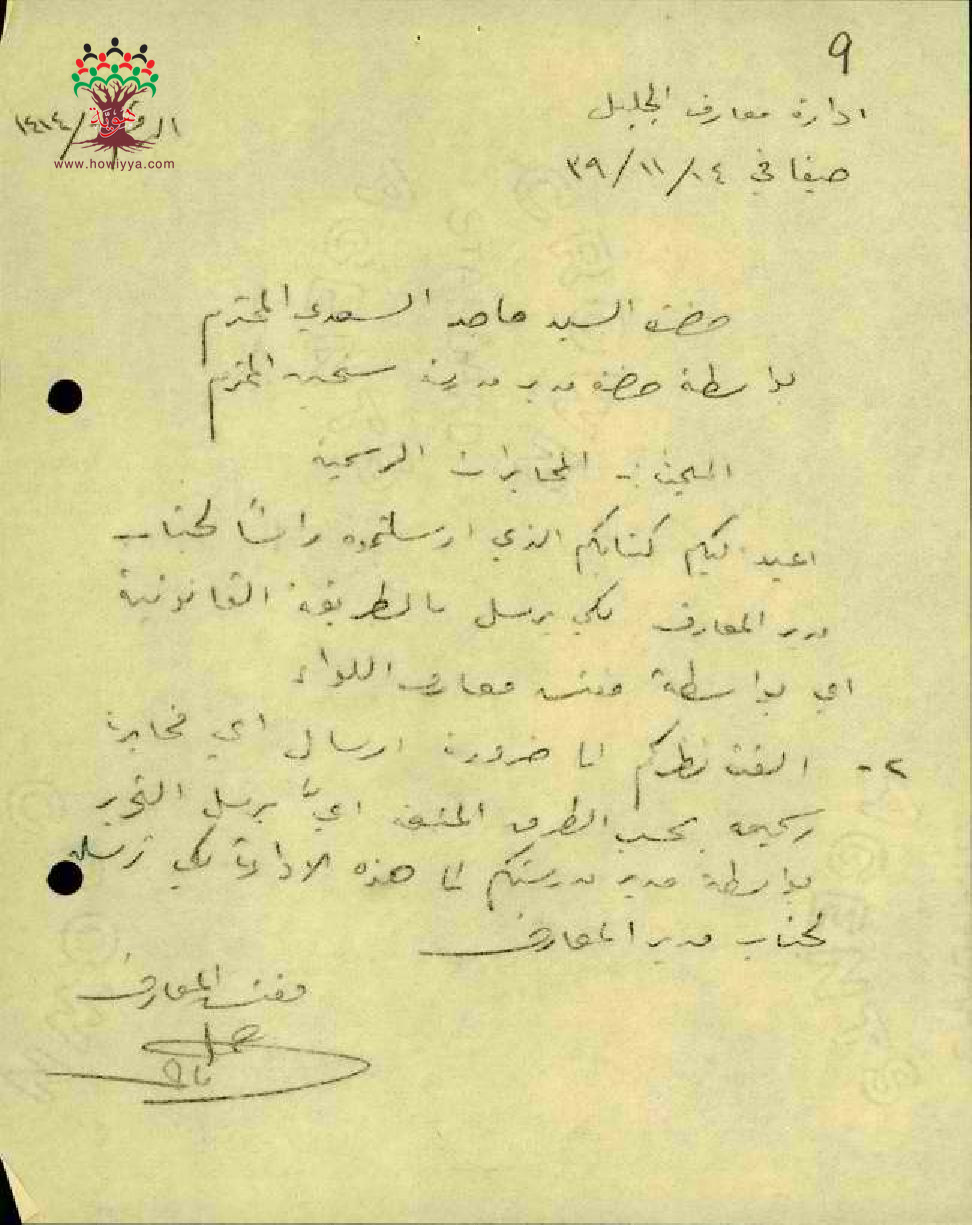 9
ادارة معارف الجليل
حيفا في ١٤/١١/٣٩
الرقم / ١٤١٤
هوية
www.howiyya.com
حضرة السيد ماجد السعدي المحترم
بواسطة حضرة مدير مدرسة المحترم
المخابرات الرسمية
اعيد اليكم كتابكم الذي ارسلتموه رأسًا لجناب
مدير المعارف لكي يرسل بالطريقة القانونية
اي بواسطة مفتش معارف اللواء
٢- الفت نظركم الى ضرورة ارسال اي مخابرة
رسمية بحسب الطرق المتبعة اي يرسل التحرير
بواسطة مدير مدرستكم الى هذه الادارة لكي ترسله
لجناب مدير المعارف
مفتش المعارف